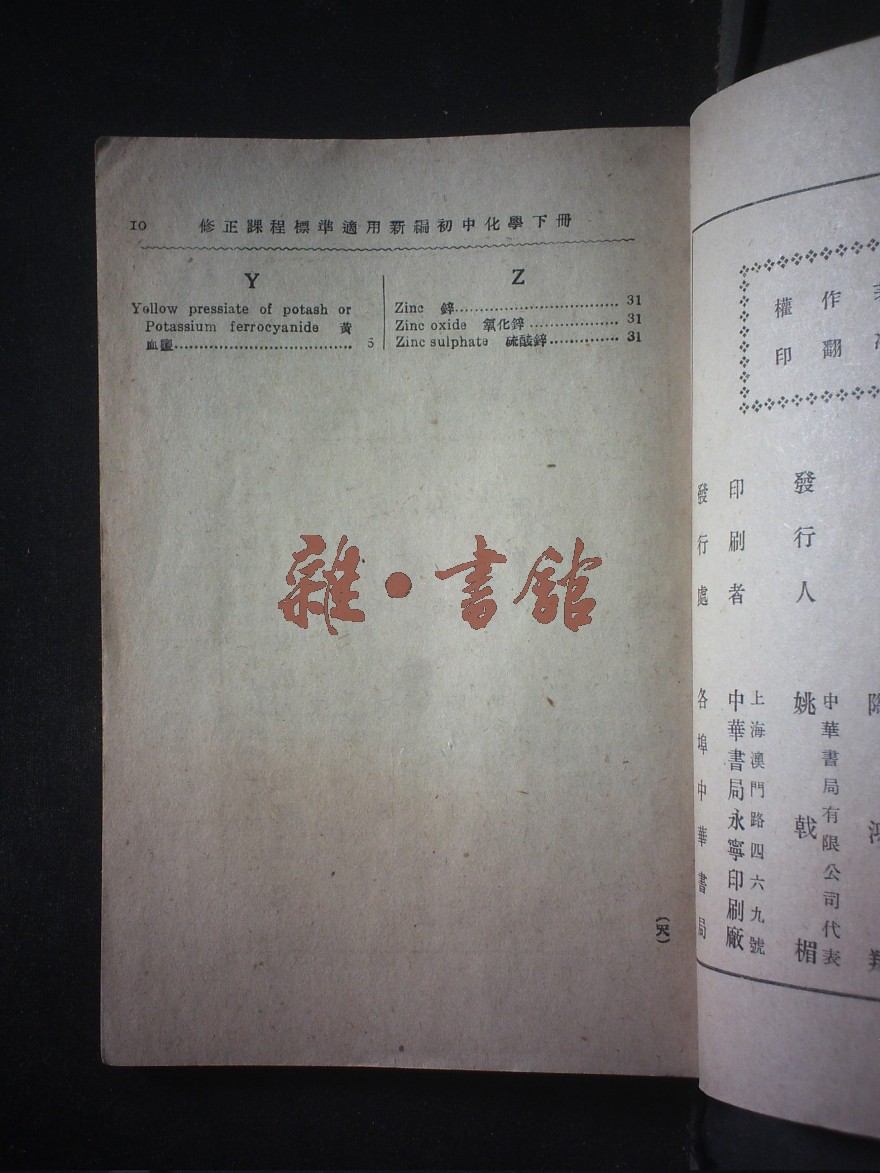 10 修正課程標準適用新編初中化學下冊
Y
Yellow pressiate of potash or
Potassium ferrocyanide 黃
血鹽 5
Z
Zinc 鋅 31
Zinc oxide 氧化鋅 31
Zinc sulphate 硫酸鋅 31
雜·書館
作翻
權印
中華書局有限公司代表
發行人 姚戟楣
上海澳門路四六九號
印刷者 中華書局永寧印刷廠
發行處 各埠中華書局